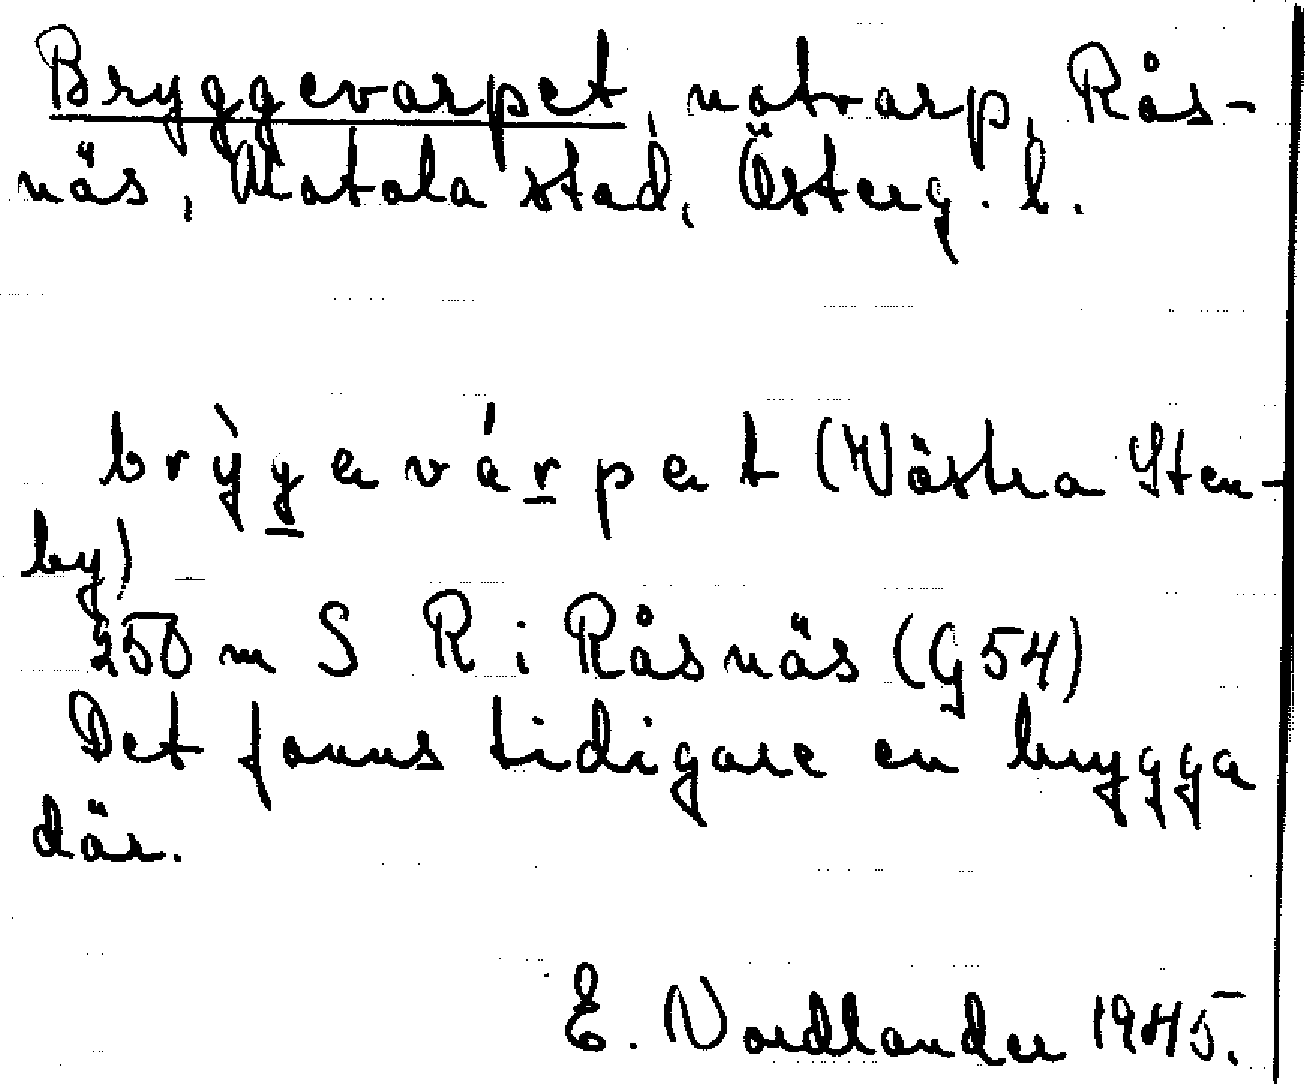 Bryggevarpet, notvarp, Rås-
näs, Motala stad, Österg. l.
brỳg̲evár̲pet (Västra Sten-
by)
250 m S R i Råsnäs (G54)
Det fanns tidigare en brygga
där.
E. Nordlander 1945.